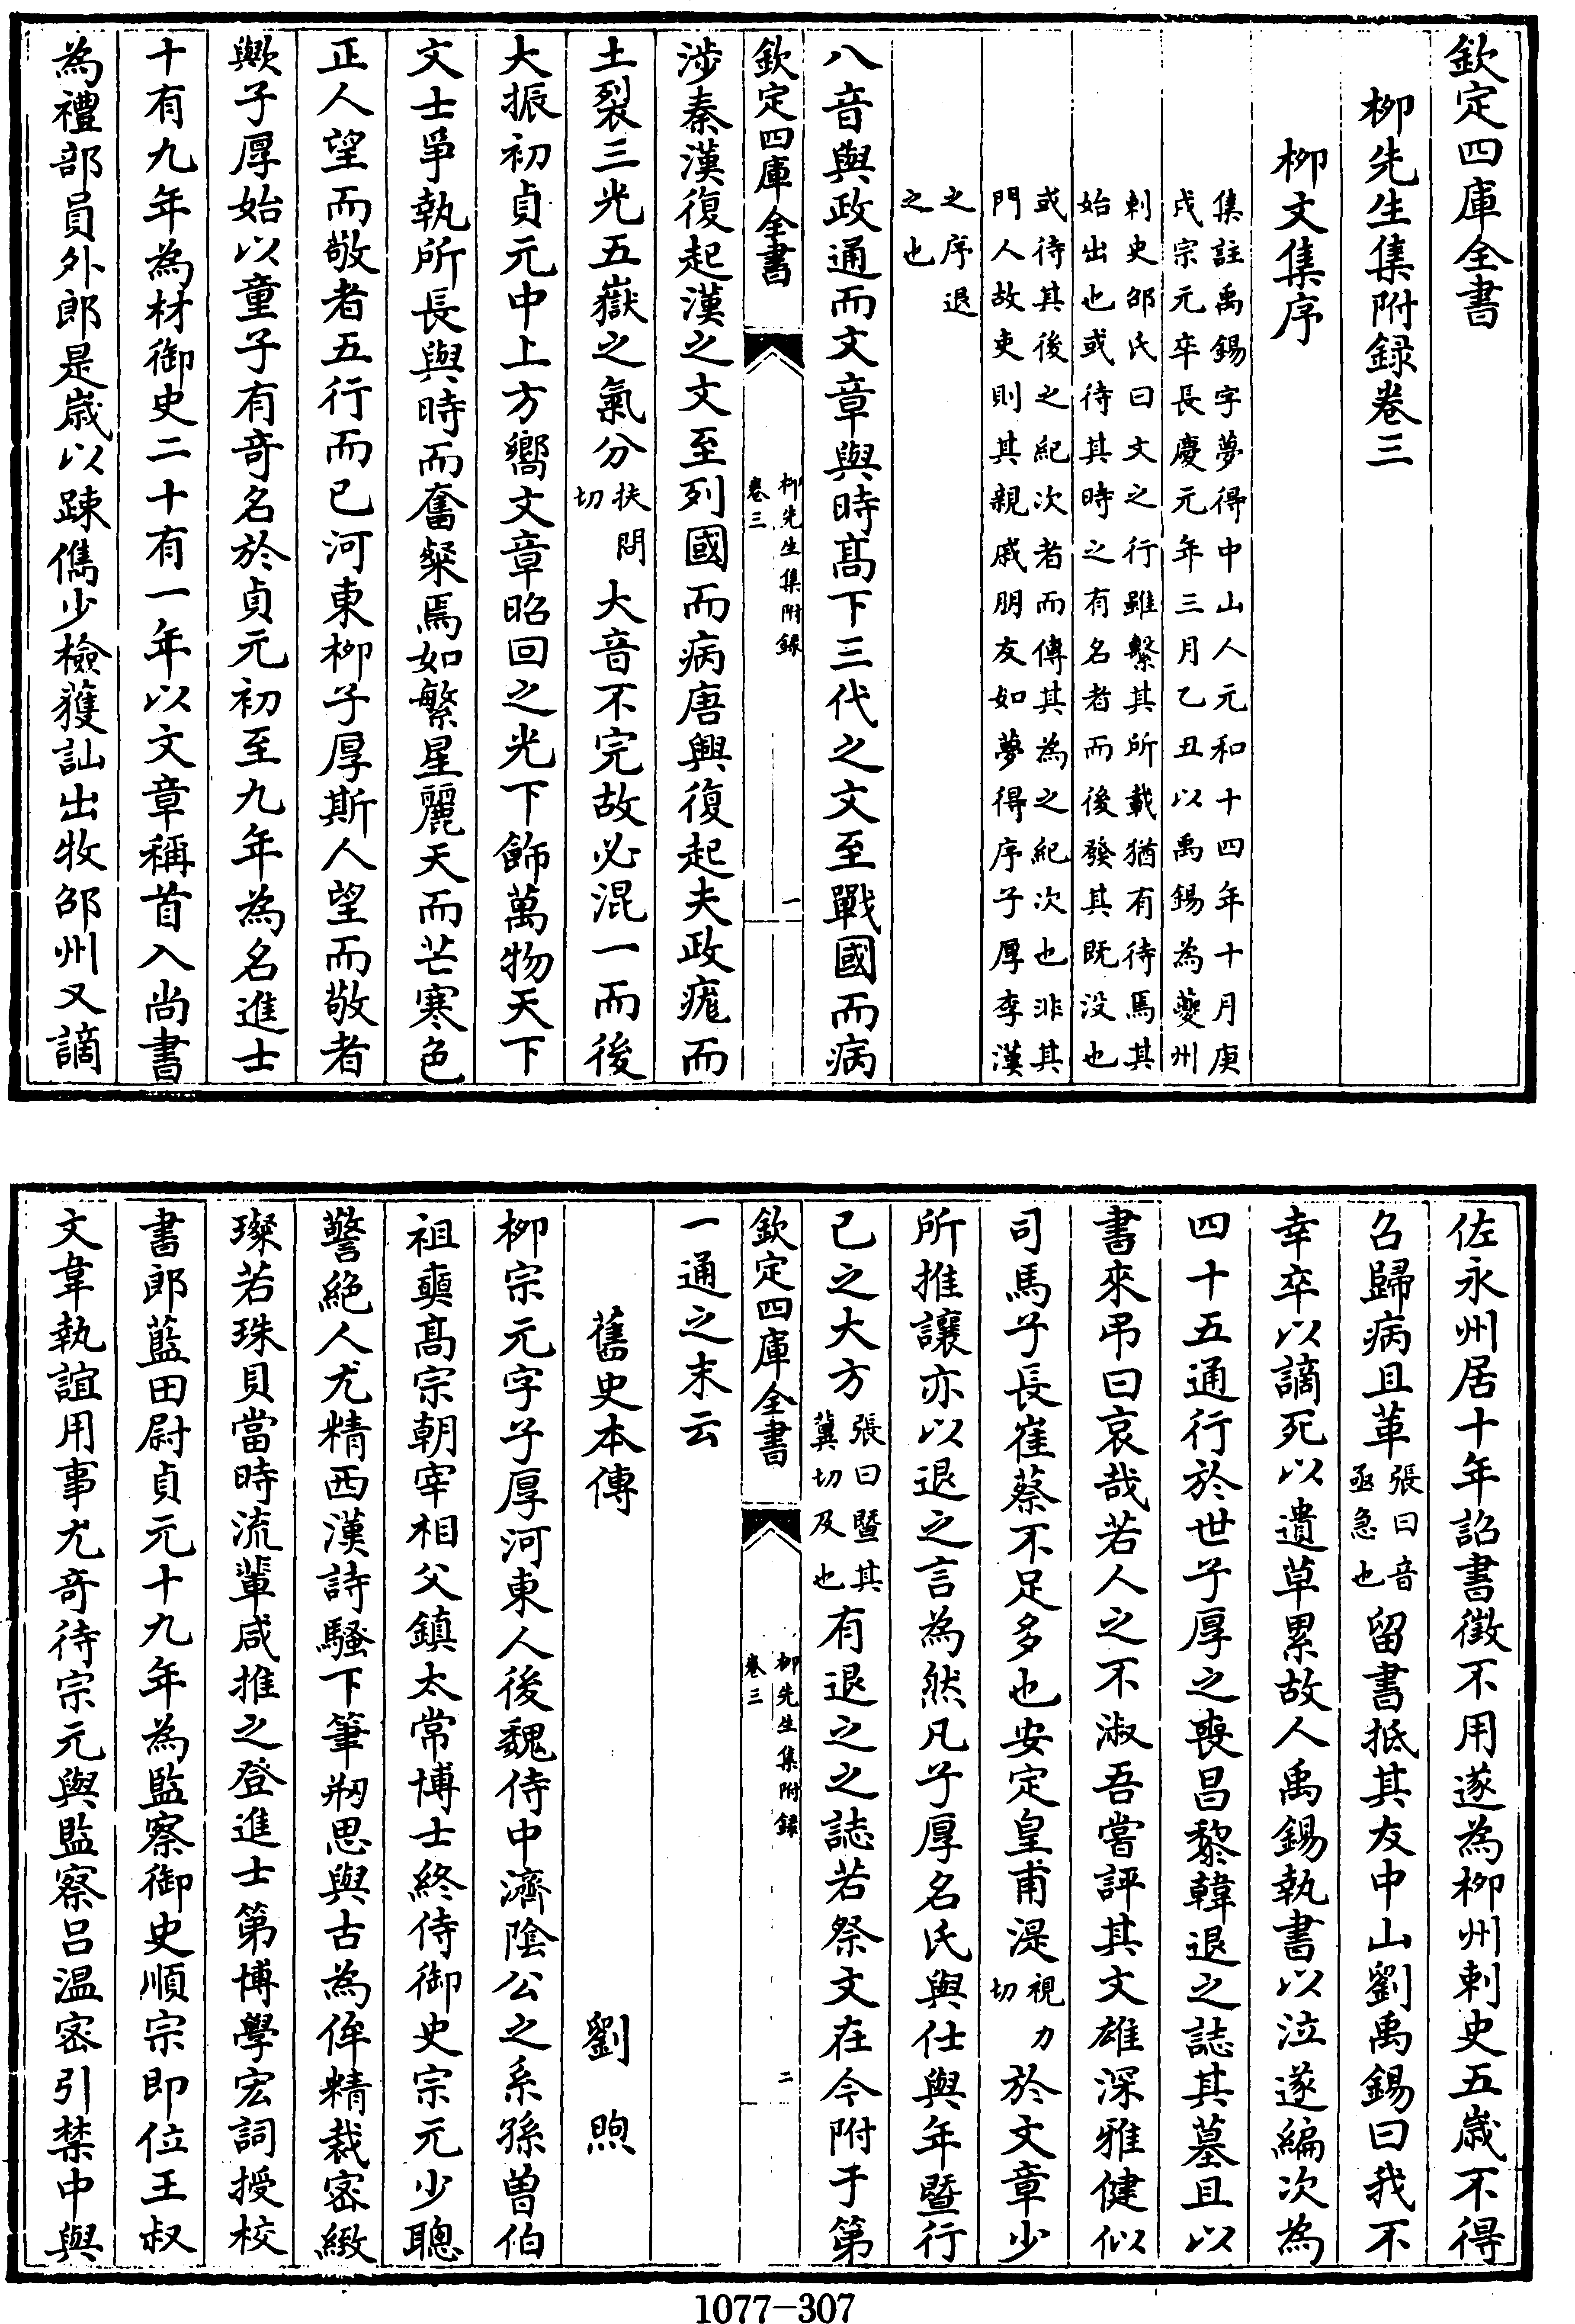 欽定四庫全書
柳先生集附録卷三
柳文集序
集註禹錫字夢得中山人元和十四年十月庚
戌宗元卒長慶元年三月乙丑以禹錫為夔州
刺史邵氏曰文之行雖繫其所載猶有待焉其
始出也或待其時之有名者而後發其既没也
或待其後之紀次者而傳其為之紀次也非其
門人故吏則其親戚朋友如夢得序子厚李漢
之序退
之也
八音與政通而文章與時髙下三代之文至戰國而病
欽定四庫全書
柳先生集附録
卷三
一
涉秦漢復起漢之文至列國而病唐興復起夫政庬而
土裂三光五嶽之氣分扶問切大音不完故必混一而後
大振初貞元中上方嚮文章昭回之光下飾萬物天下
文士爭執所長與時而奮粲焉如繁星麗天而芒寒色
正人望而敬者五行而已河東柳子厚斯人望而敬者
歟子厚始以童子有竒名於貞元初至九年為名進士
十有九年為材御史二十有一年以文章稱首入尚書
為禮部員外郎是嵗以踈儁少檢獲訕出牧邵州又謫
佐永州居十年詔書徵不用遂為柳州刺史五嵗不得
召歸病且革張曰音亟急也留書抵其友中山劉禹錫曰我不
幸卒以謫死以遺草累故人禹錫執書以泣遂編次為
四十五通行於世子厚之喪昌黎韓退之誌其墓且以
書來弔曰哀哉若人之不淑吾嘗評其文雄深雅健似
司馬子長崔蔡不足多也安定皇甫湜視力切於文章少
所推讓亦以退之言為然凡子厚名氏與仕與年暨行
已之大方張曰暨其冀切及也有退之之誌若祭文在今附于第
欽定四庫全書
柳先生集附録
卷三
二
一通之末云
舊史本傳　劉煦
柳宗元字子厚河東人後魏侍中濟陰公之系孫曽伯
祖奭髙宗朝宰相父鎮太常博士終侍御史宗元少聰
警絶人尤精西漢詩騷下筆搆思與古為侔精裁密緻
璨若珠貝當時流輩咸推之登進士第博學宏詞授校
書郎藍田尉貞元十九年為監察御史順宗即位王叔
文韋執誼用事尤竒待宗元與監察吕温密引禁中與
1077-307